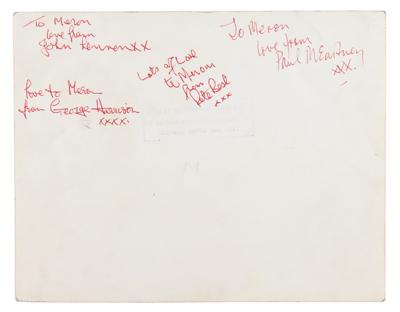 To Meron
love from
John Lennon xx
To Meron
love from
Paul McCartney
xx.
Lots of Love
to Merom
from
Pete Best
xxx
love to Meron
from George Harrison
xxxx.